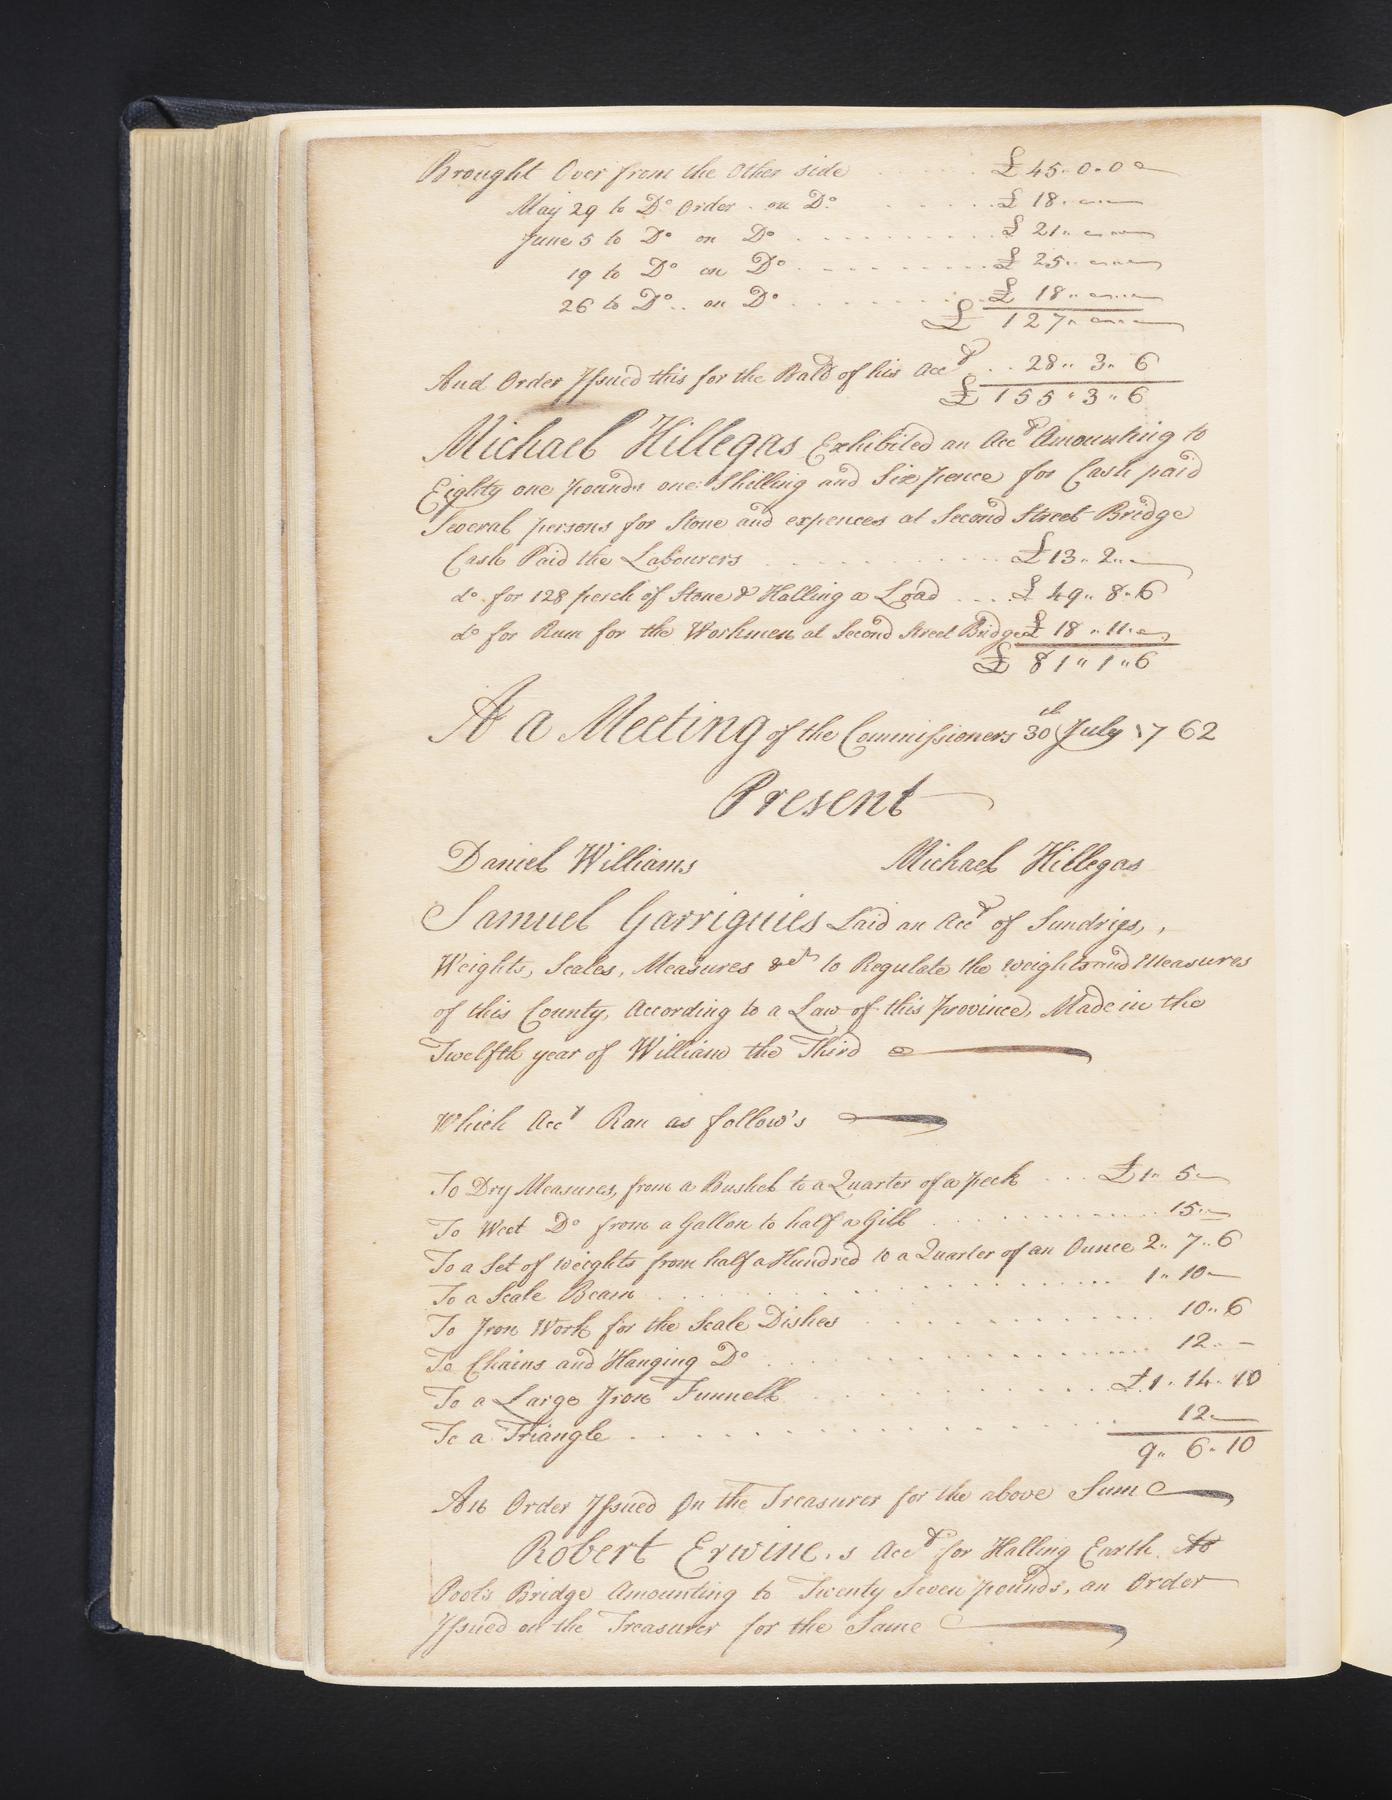 Brought Over from the Other side £ 45.. 0.. 0
May 29 to Do Order on Do £ 18..
June 5 to Do on Do £ 21..
19 to Do on Do £ 25..
26 to Do on Do £ 18..
£ 127..
And Order Issued this for the Balce of his Acct 28.. 3.. 6
£ 155.. 3.. 6
Michael Hillegas Exhibited an Acct Amounting to
Eighty one pounds one Shilling and Six pence for Cash paid
Several persons for Stone and expences at Second Street Bridge
Cash Paid the Labourers £ 13.. 2..
do for 128 perch of Stone & Halling a Load £ 49.. 8.. 6
do for Rum for the Workmen at Second Street Bridge £ 18.. 11..
£ 81.. 1.. 6
At a Meeting of the Commissioners 30th July 1762
Present
Daniel Williams Michael Hillegas
Samuel Garriguies Laid an Acct of Sundries,
Weights, Scales, Measures &ct to Regulate the weights and Measures
of this County, According to a Law of this province, Made in the
Twelfth year of William the Third
Which Acct Ran as follow's
To Dry Measures, from a Bushel to a Quarter of a peck £ 1.. 5
To Weet Do from a Gallon to half a Gill 15..
To a Set of weights from half a Hundred to a Quarter of an Ounce 2.. 7.. 6
To a Scale Beam 1.. 10
To Iron Work for the Scale Dishes 10.. 6
To Chains and Hanging Do 12.. -
To a Large Iron Funnell £ 1.. 14.. 10
To a Triangle 12
9.. 6.. 10
An Order Issued on the Treasurer for the above Sum
Robert Erwine.s Acct for Halling Earth to
Pools Bridge Amounting to Twenty Seven pounds, an Order
Issued on the Treasurer for the Same